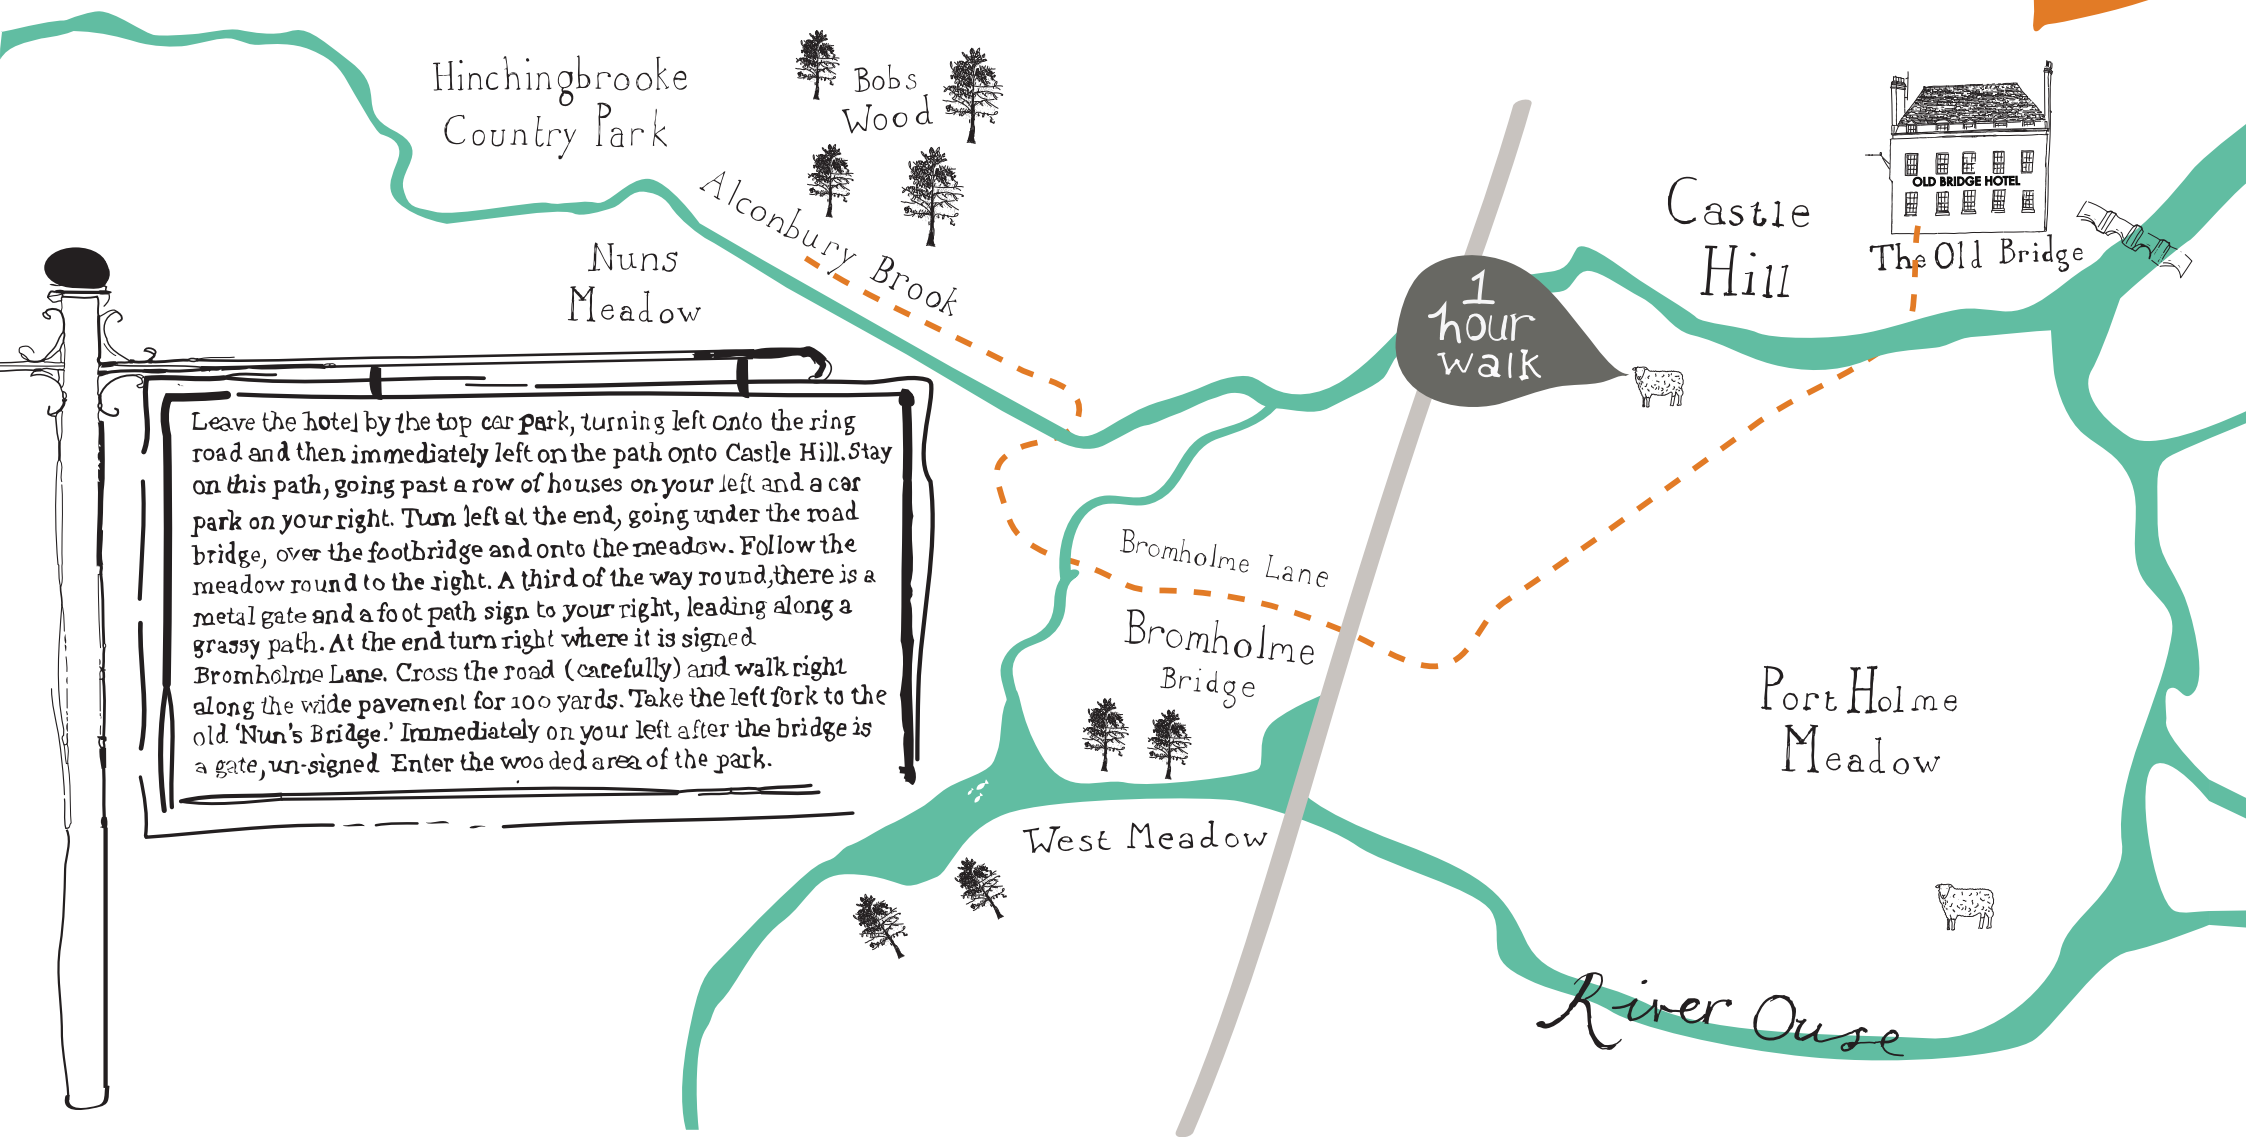 Hinchingbrooke
Country Park
Bobs
Wood
Alconbury Brook
Nuns
Meadow
1
hour
walk
Castle
Hill
OLD BRIDGE HOTEL
The Old Bridge
Leave the hotel by the top car park, turning left onto the ring
road and then immediately left on the path onto Castle Hill. Stay
on this path, going past a row of houses on your left and a car
park on your right. Turn left at the end, going under the road
bridge, over the footbridge and onto the meadow. Follow the
meadow round to the right. A third of the way round, there is a
metal gate and a foot path sign to your right, leading along a
grassy path. At the end turn right where it is signed
Bromholme Lane. Cross the road (carefully) and walk right
along the wide pavement for 100 yards. Take the left fork to the
old 'Nun's Bridge.' Immediately on your left after the bridge is
a gate, un-signed Enter the wooded area of the park.
Bromholme Lane
Bromholme
Bridge
Port Holme
Meadow
West Meadow
River Ouse